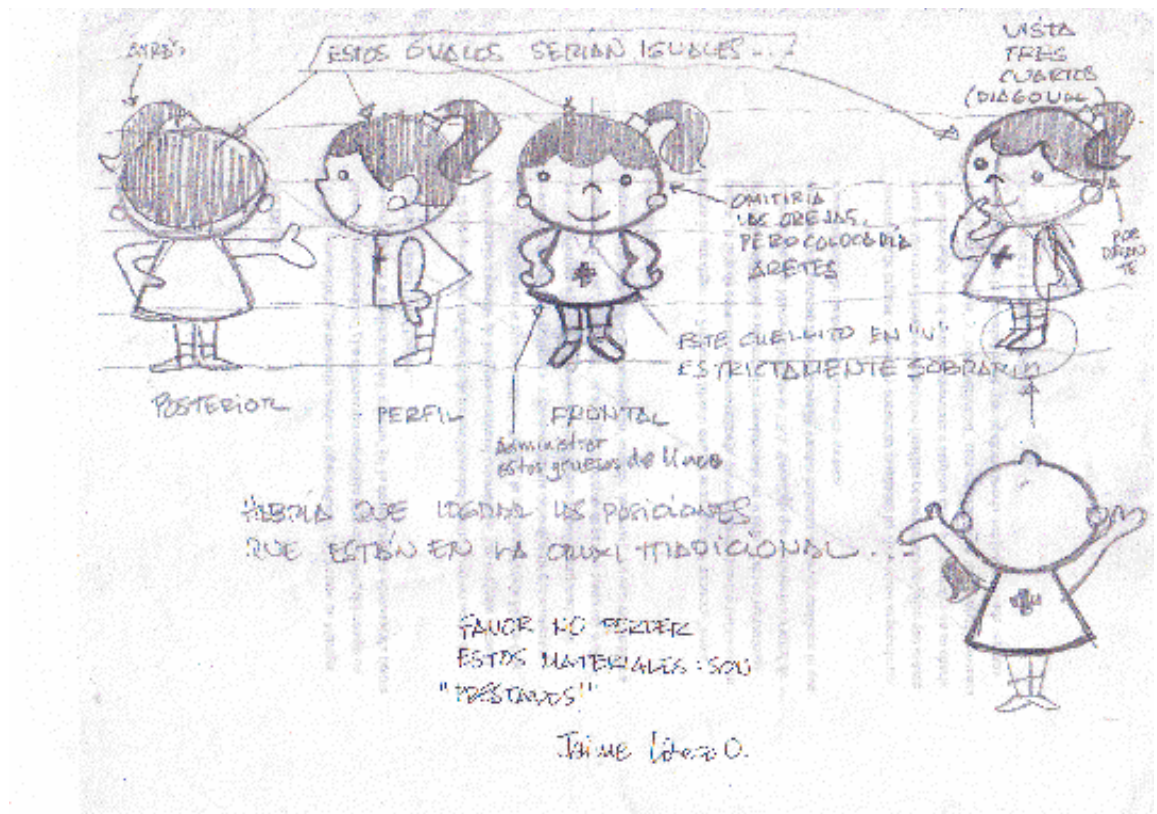 ATRÁS
ESTOS ÓVALOS SERÍAN IGUALES...
VISTA
TRES
CUARTOS
(DIAGONAL)
OMITIRÍA
LAS OREJAS,
PERO COLOCARÍA
ARETES
POR
DELAN
TE
ESTE CUELLITO EN "V"
ESTRICTAMENTE SOBRARÍA
POSTERIOR
PERFIL
FRONTAL
Administrar
estos gruesos de línea
HABRÍA QUE LOGRAR LAS POSICIONES
QUE ESTÁN EN LA CRUXI TRADICIONAL...
FAVOR NO PERDER
ESTOS MATERIALES: SON
"PRESTADOS"
Jaime O.